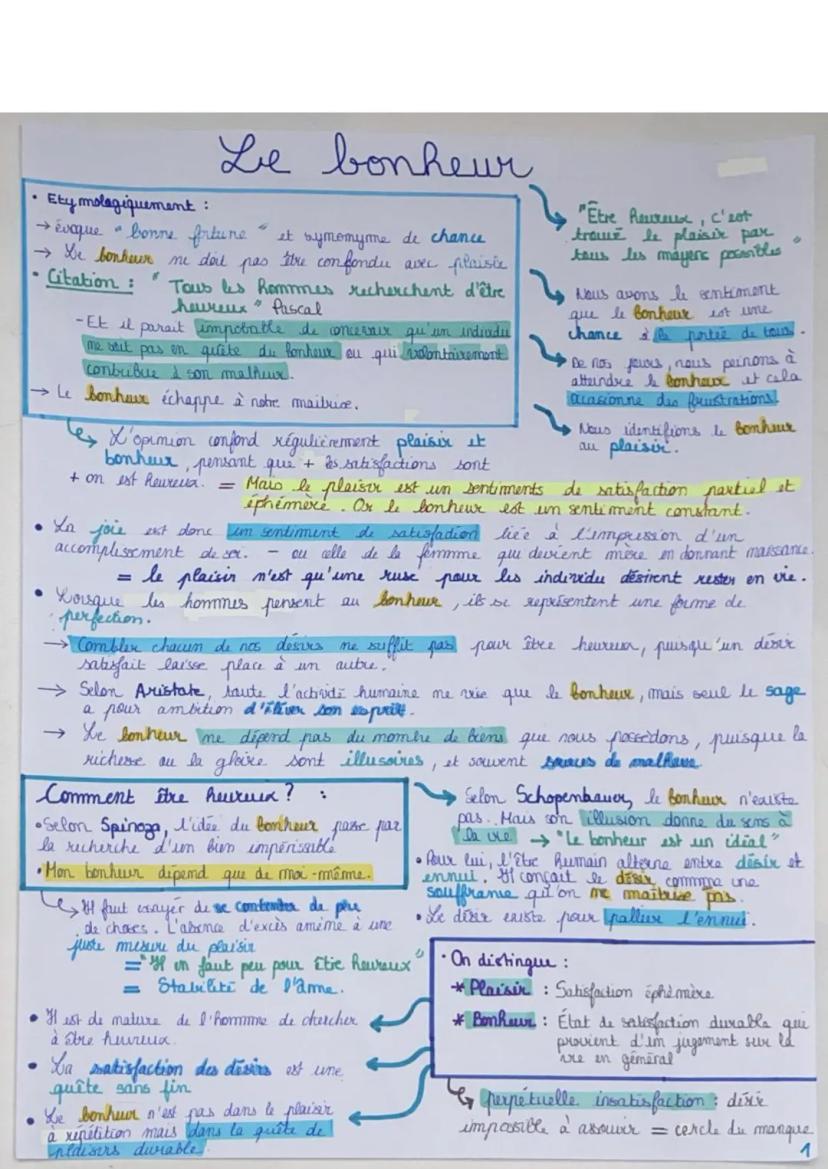 Le bonheur
• Etymologiquement :
→ évoque "bonne fortune" et symomyme de chance
→ Le bonheur ne doit pas être confondu avec plaisir
• Citation : "Tous les hommes recherchent d'être
heureux" Pascal
- Et il parait improbable de concevoir qu'un individu
ne soit pas en quête du bonheur ou qui volontairement
contribue à son malheur.
→ Le bonheur échappe à notre maitrise.
"Être heureux, c'est
trouvé le plaisir par
tous les moyens possibles"
Nous avons le sentiment
que le bonheur est une
chance à la portée de tous.
De nos jours, nous peinons à
atteindre le bonheur et cela
occasionne des frustrations
Nous identifions le bonheur
au plaisir.
L'opinion confond régulièrement plaisir et
bonheur, pensant que + les satisfactions sont
+ on est heureux. = Mais le plaisir est un sentiments de satisfaction partiel et
éphémère. Or le bonheur est un sentiment constant.
• La joie est donc un sentiment de satisfaction liée à l'impression d'un
accomplissement de soi. - ou celle de la femme qui devient mère en donnant naissance.
= le plaisir n'est qu'une ruse pour les individu désirent rester en vie.
• Lorsque les hommes pensent au bonheur, ils se représentent une forme de
perfection.
→ Combler chacun de nos désirs ne suffit pas pour être heureux, puisque "un désir
satisfait laisse place à un autre."
→ Selon Aristote, toute l'activité humaine ne vise que le bonheur, mais seul le sage
a pour ambition d'élever son esprit.
→ Le bonheur ne dépend pas du nombre de biens que nous possédons, puisque la
richesse ou la gloire sont illusoires, et souvent sources de malheur
Comment être heureux ? :
• Selon Spinoza, l'idée du bonheur passe par
la recherche d'un bien impérissable
• Mon bonheur dépend que de moi-même.
Il faut essayer de se contenter de peu
de choses. L'absence d'excès amène à une
juste mesure du plaisir
= "Il en faut peu pour être heureux"
= Stabilité de l'âme.
Selon Schopenhauer, le bonheur n'existe
pas. Mais son illusion donne du sens à
la vie → "Le bonheur est un idéal"
• Pour lui, l'être humain alterne entre désir et
ennui. Il conçoit le désir comme une
souffrance qu'on ne maitrise pas.
• Le désir existe pour pallier l'ennui.
• On distingue :
* Plaisir : Satisfaction éphémère
* Bonheur : État de satisfaction durable qui
provient d'un jugement sur la
vie en général
• Il est de nature de l'homme de chercher
à être heureux
• La satisfaction des désirs est une
quête sans fin
• Le bonheur n'est pas dans le plaisir
à répétition mais dans la quête de
plaisirs durable.
perpétuelle insatisfaction : désir
impossible à assouvir = cercle du manque
1